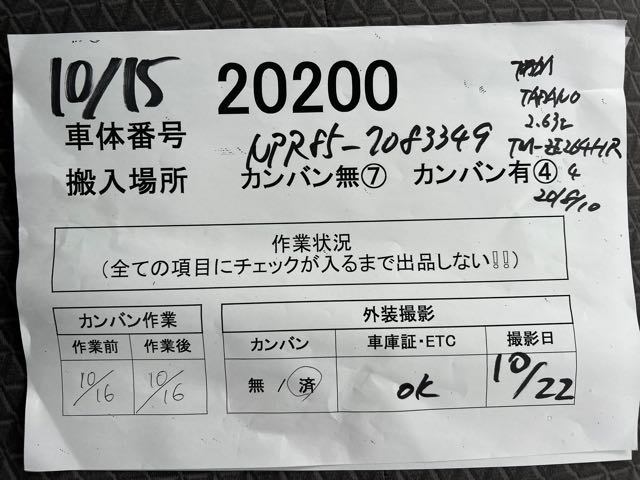 10/15 20200
車体番号 NPR85-7083349
搬入場所 カンバン無⑦ カンバン有④
TADANO
2.63t
2018/10
作業状況
(全ての項目にチェックが入るまで出品しない!!)
カンバン作業
作業前 作業後
10/16 10/16
外装撮影
カンバン 車庫証・ETC 撮影日
無 / 済 OK 10/22